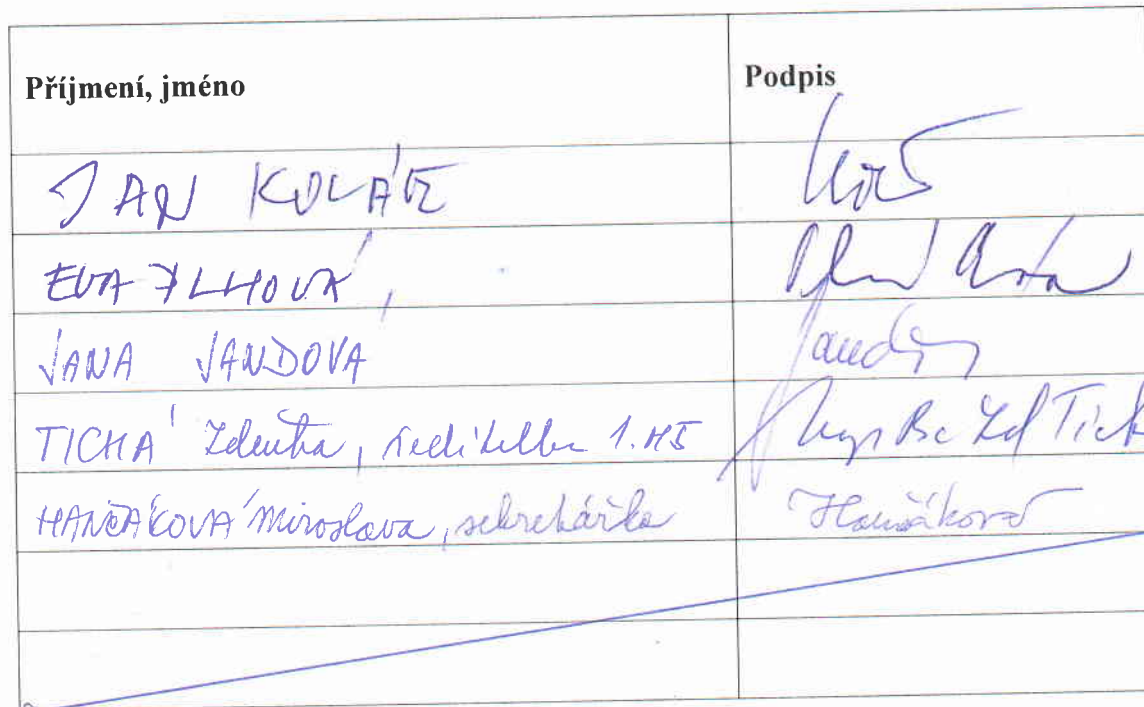 Příjmení, jméno Podpis
JAN KOLÁŘ
EVA
JANA JANDOVÁ
TICHÁ Zdeňka, ředitelka 1. Tich
HANČÁKOVÁ Miroslava, sekretářka Hančáková